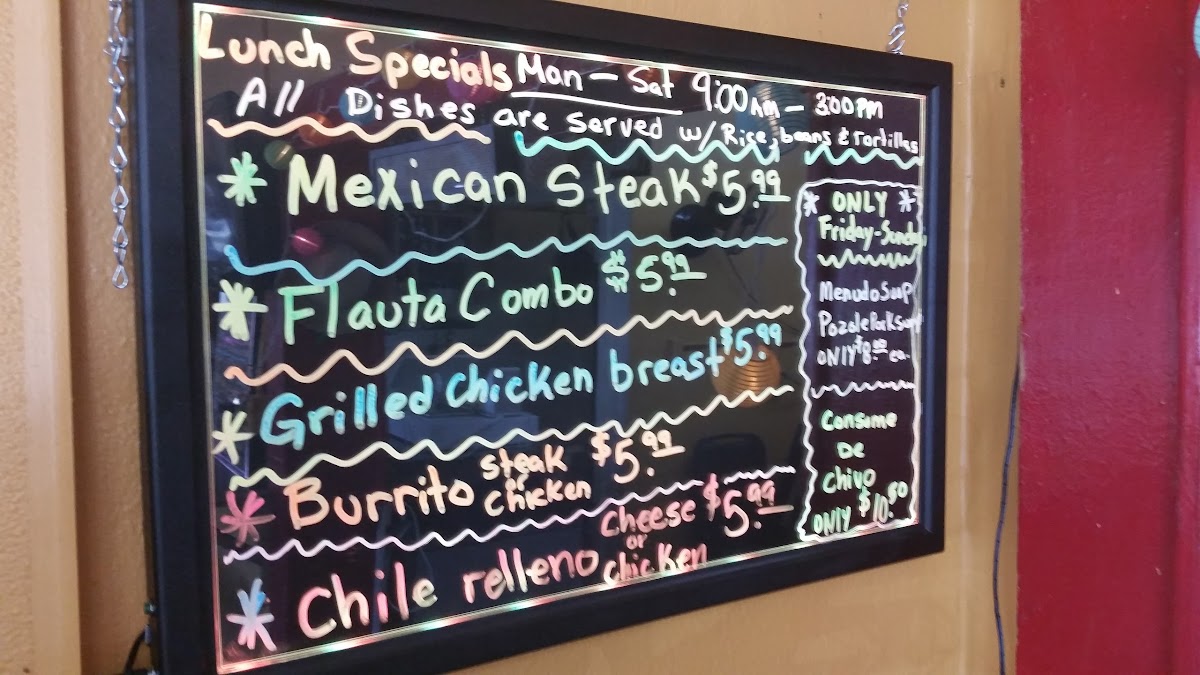 Lunch Specials Mon - Sat 9:00 AM - 3:00 PM
All Dishes are served w/ Rice, beans & Tortillas
* Mexican Steak $5.99
* Flauta Combo $5.99
* Grilled Chicken breast $5.99
* Burrito steak or chicken $5.99
* Chile relleno cheese or chicken $5.99
* ONLY *
Friday-Sunday
Menudo Soup
Pozole Pork Soup
ONLY $8.00 ea.
Consome
De
Chivo
ONLY $10.80